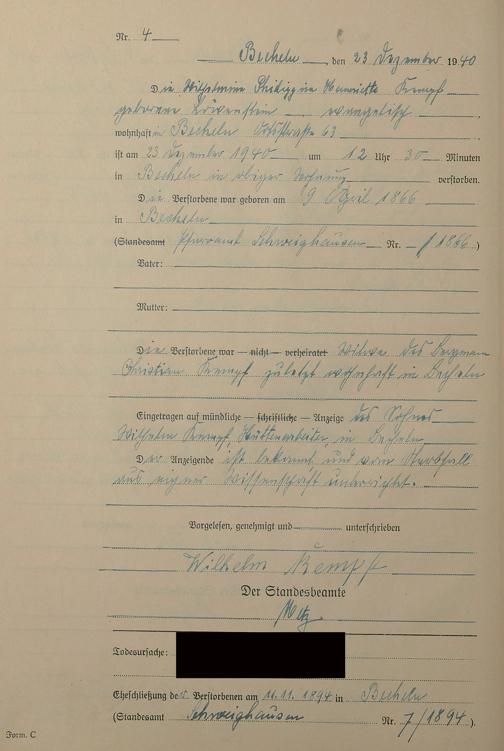 Nr. 4
Becheln, den 23 Dezember 1940
Die Wilhelmine Philippine Henriette Kempf
geborene Löwenstein – evangelisch
wohnhaft in Becheln Ortsstraße 63
ist am 23 Dezember 1940 um 12 Uhr 30 Minuten
in Becheln in obiger Wohnung verstorben.
Die Verstorbene war geboren am 9 April 1866
in Becheln
(Standesamt Pfarramt Schweighausen Nr. – / 1866)
Vater:
Mutter:
Die Verstorbene war – nicht – verheiratet Witwe des Bergmann
Christian Kempf zuletzt wohnhaft in Becheln
Eingetragen auf mündliche – schriftliche – Anzeige des Sohnes
Wilhelm Kempf, Hüttenarbeiter, in Becheln
Der Anzeigende ist bekannt und vom Sterbfall
aus eigner Wissenschaft unterrichtet.
Vorgelesen, genehmigt und unterschrieben
Wilhelm Kempf
Der Standesbeamte
Metz
Todesursache:
Eheschließung der Verstorbenen am 11.11.1894 in Becheln
(Standesamt Schweighausen Nr. 7/1894).
Form. C